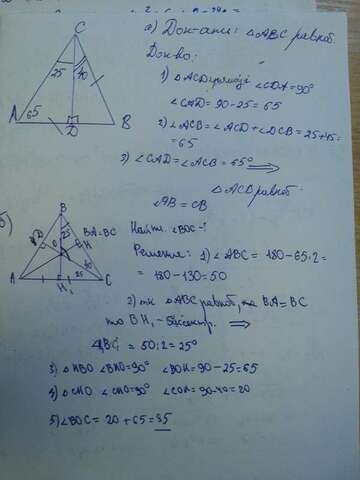 а) Док-ать: △ABC равноб.
Док-во:
C
25
40
A
65
D
B
1) △ACD ∠CDA=90°
∠CAD=90-25=65
2) ∠ACB=∠ACD+∠DCB=25+45=
=65
3) ∠CAD=∠ACB=65° ⟹
△ACB равноб.
AB=CB
б)
B
25
BA=BC
D
O
H
A
H₁
25
C
Найти: ∠BOC-?
Решение: 1) ∠ABC=180-65·2=
=180-130=50
2) тк △ABC равноб, та BA=BC
то BH₁-биссектр. ⟹
=50:2=25°
3) △HBO ∠BHO=90° ∠BOH=90-25=65
4) △CHO ∠CHO=90° ∠COH=90-40=20
5) ∠BOC=20+65=85